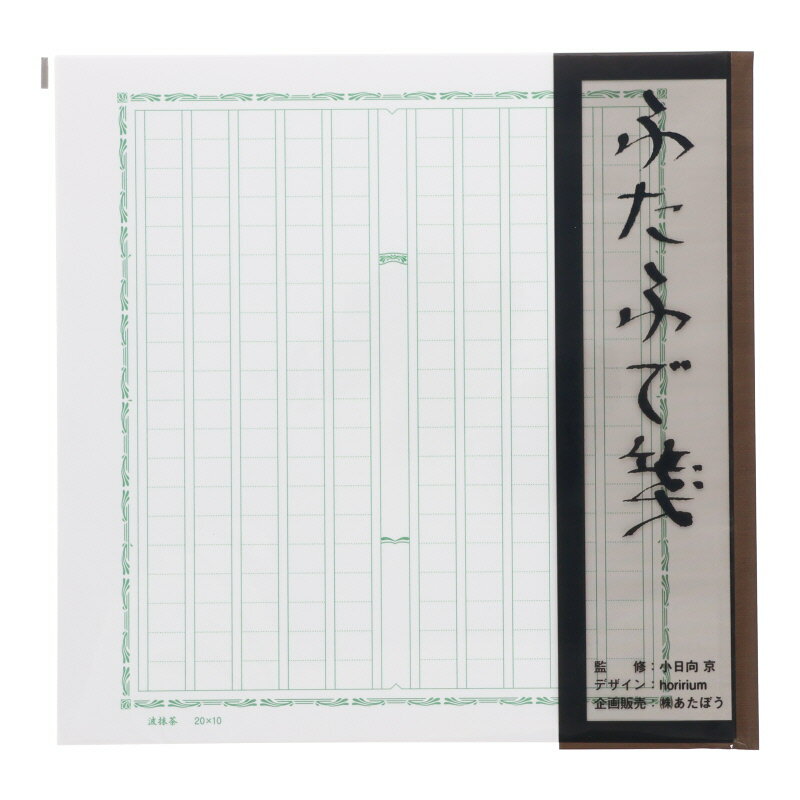 ふたふで箋
監　修：小日向 京
デザイン：horirium
企画販売：㈱あたぼう
波抹茶　20×10